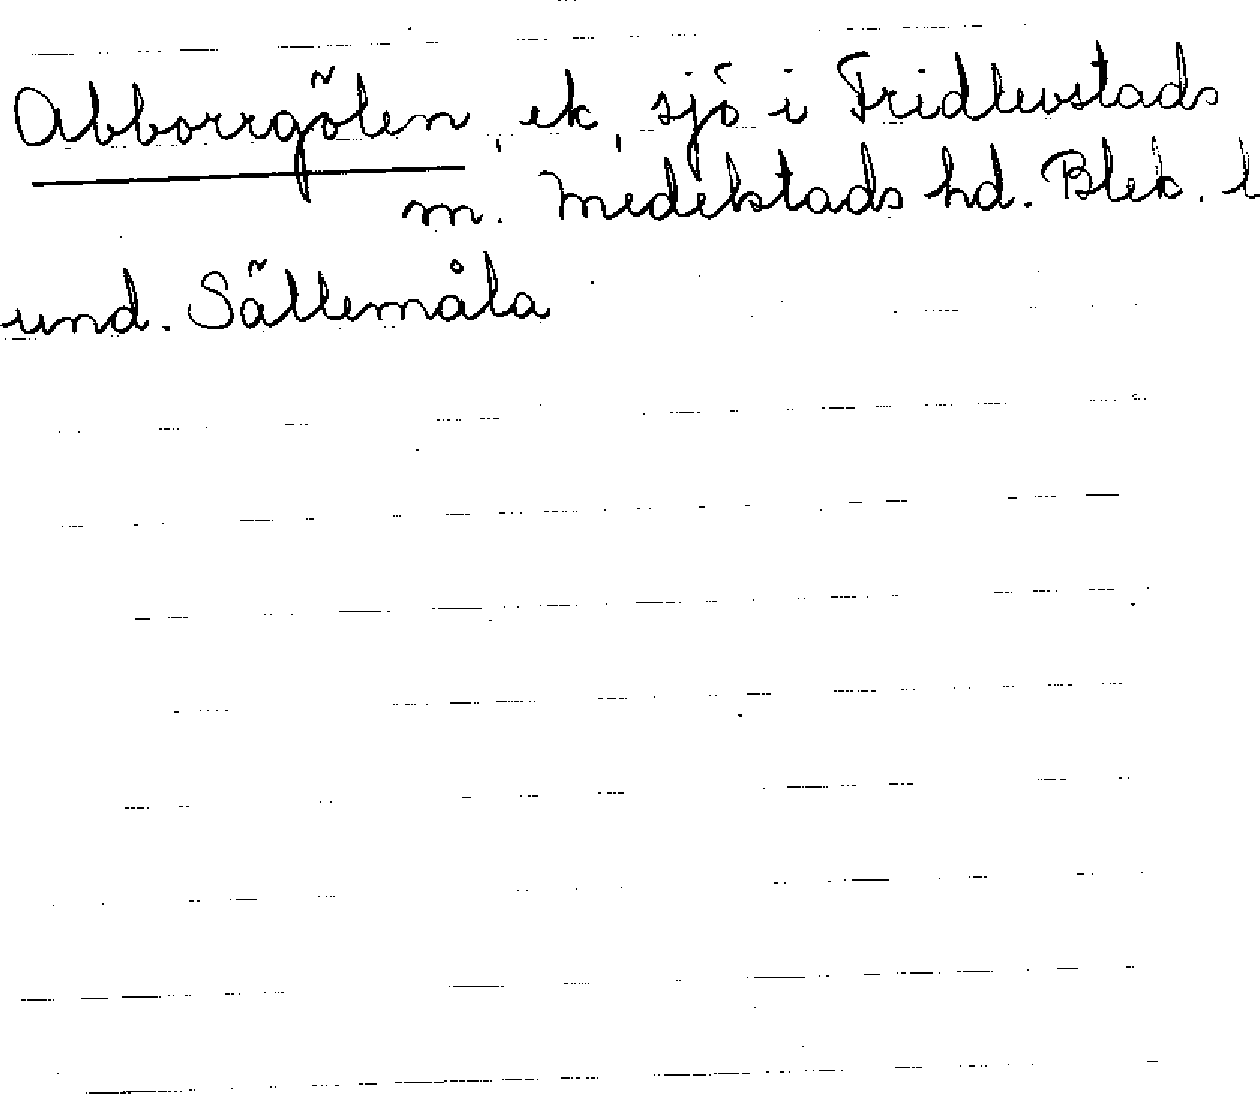 Abborrgölen, ek, sjö i Fridlevstads
m. Medelstads hd. Blek. l
und. Sällemåla